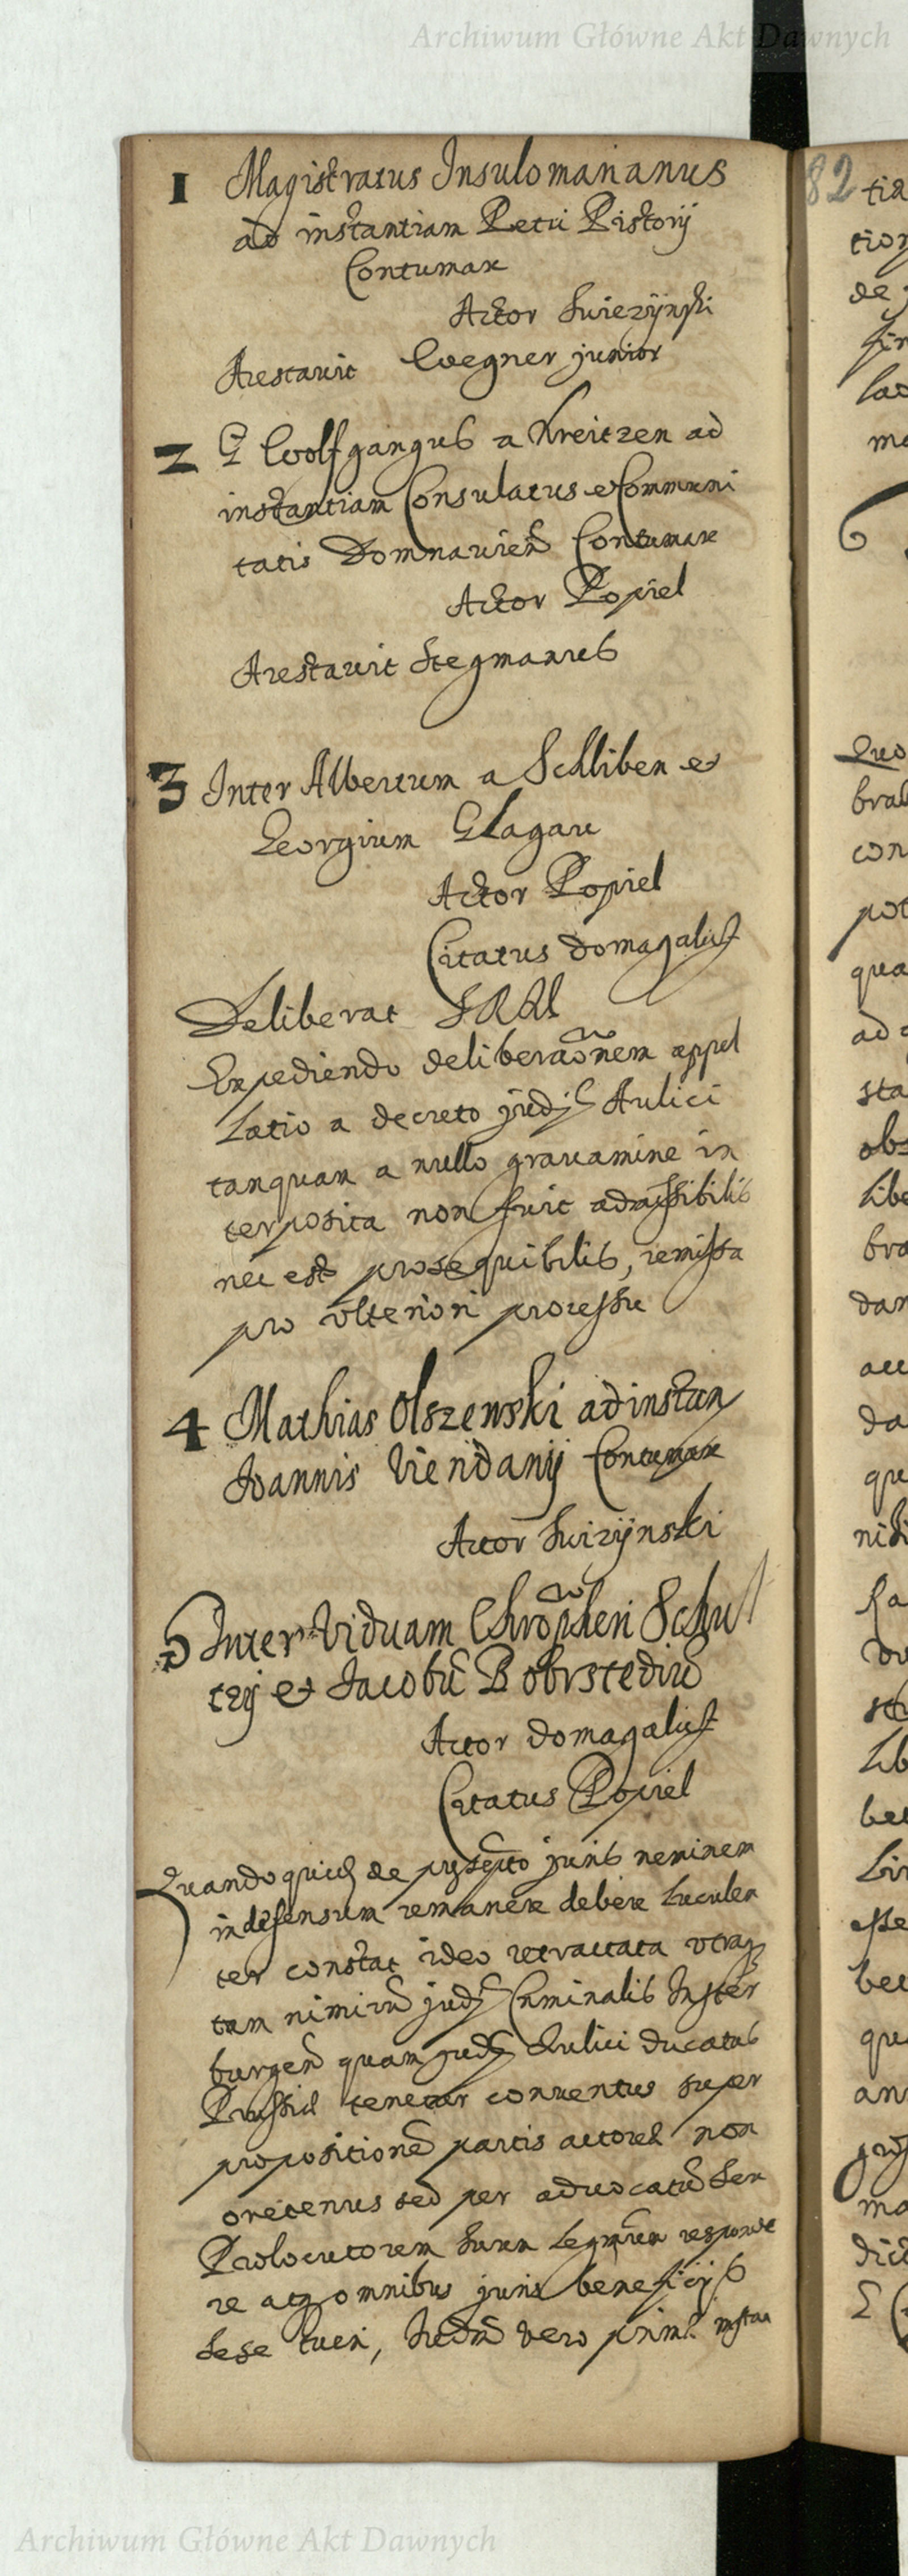 Archiwum Główne Akt Dawnych
1 Magistratus Insulomarianus
ad instantiam Petri Pistorij
Contumax
Actor Swiezijnski
Arestavit Wegner junior
2 G Wolfgangus a Kreitzen ad
instantiam Consulatus et Communi
tatis Domnavien Contumax
Actor Popiel
Arestavit Stegmanus
3 Inter Albertum a Schliben et
Georgium Glagau
Actor Popiel
Citatus Domagalius
Deliberat SRM
Expediendo deliberaōnem appel
latio a decreto judij Aulici
tanquam a nullo gravamine in
terposita non fuit admissibilis
nec est prosequibilis, remissa
pro ulteriori processu
4 Mathias Olszewski ad instan
Joannis Viendanij Contumax
Actor Swizijnski
5 Inter Viduam Chrōpheri Schul
tzij et Jacobū Bobrstediū
Actor Domagalius
Citatus Popiel
Quandoquid de juris neminem
indefensum remanere debere luculen
ter constat ideo retractata utraq
tam nimirū judij Criminalis Inster
burgen quam judij Aulici Ducatus
Prussiæ tenetur conventus super
propositionē partis actoreæ non
oretenus sed per advocatū seu
Prolocutorem suum responde
re atq omnibus juris beneficijs
sese tueri, vero primæ instan
82
tia
tion
de
lac
ma
Quo
brab
con
pot
qua
ad
sta
obs
libe
bra
dan
da
que
be
qu
ann
ma
Archiwum Główne Akt Dawnych